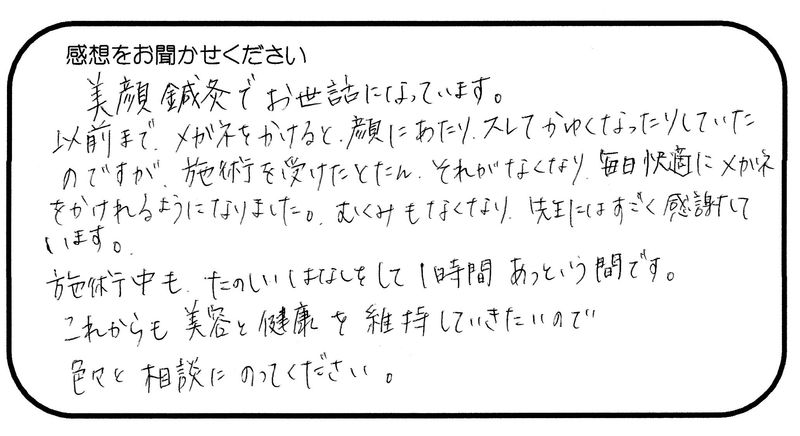 感想をお聞かせください
美顔鍼灸でお世話になっています。
以前まで、メガネをかけると、顔にあたり、スレてかゆくなったりしていた
のですが、施術を受けたとたん、それがなくなり、毎日快適にメガネ
をかけれるようになりました。むくみもなくなり、先生にはすごく感謝して
います。
施術中も、たのしいはなしをして1時間あっという間です。
これからも美容と健康を維持していきたいので
色々と相談にのってください。